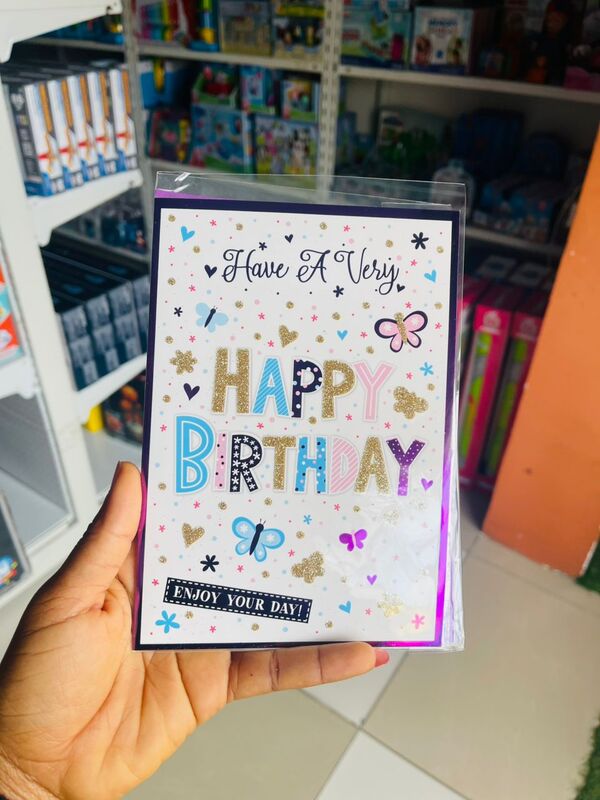 Have A Very
HAPPY
BIRTHDAY
ENJOY YOUR DAY!